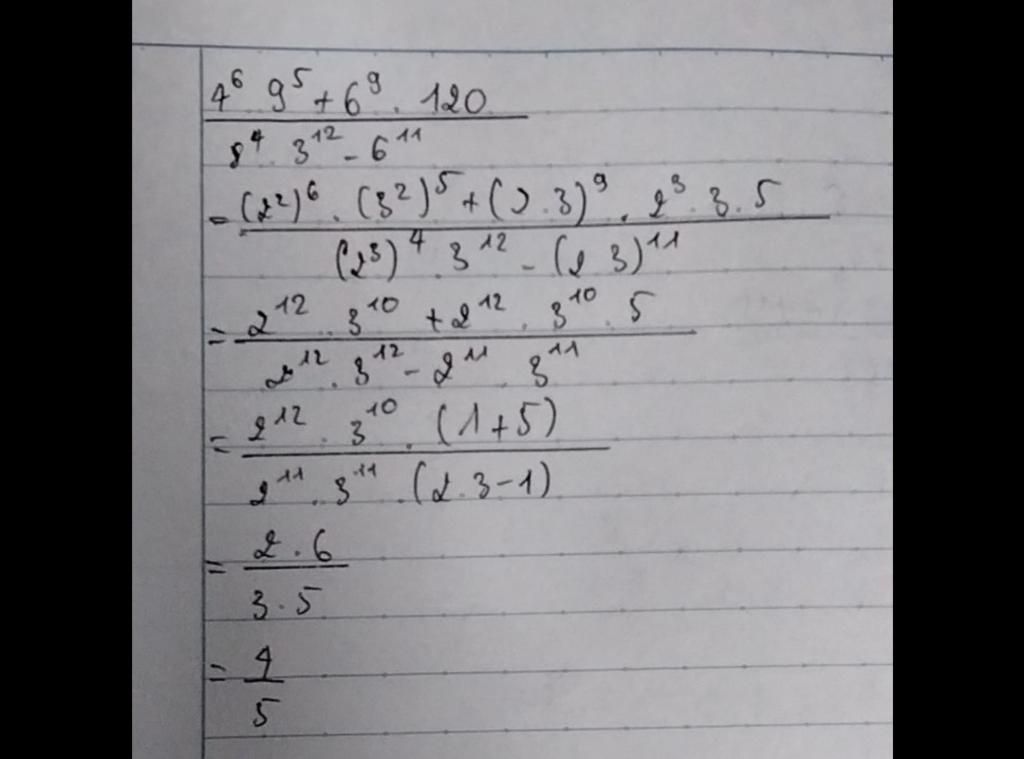 4⁶ 9⁵ + 6⁹ . 120
8⁴ . 3¹² - 6¹¹
= (2²)⁶ . (3²)⁵ + (2 . 3)⁹ . 2³ . 3 . 5
(2³)⁴ . 3¹² - (2 3)¹¹
= 2¹² . 3¹⁰ + 2¹² . 3¹⁰ . 5
2¹² . 3¹² - 2¹¹ . 3¹¹
= 2¹² . 3¹⁰ . (1 + 5)
2¹¹ . 3¹¹ . (2 . 3 - 1)
= 2 . 6
3 . 5
= 4
5